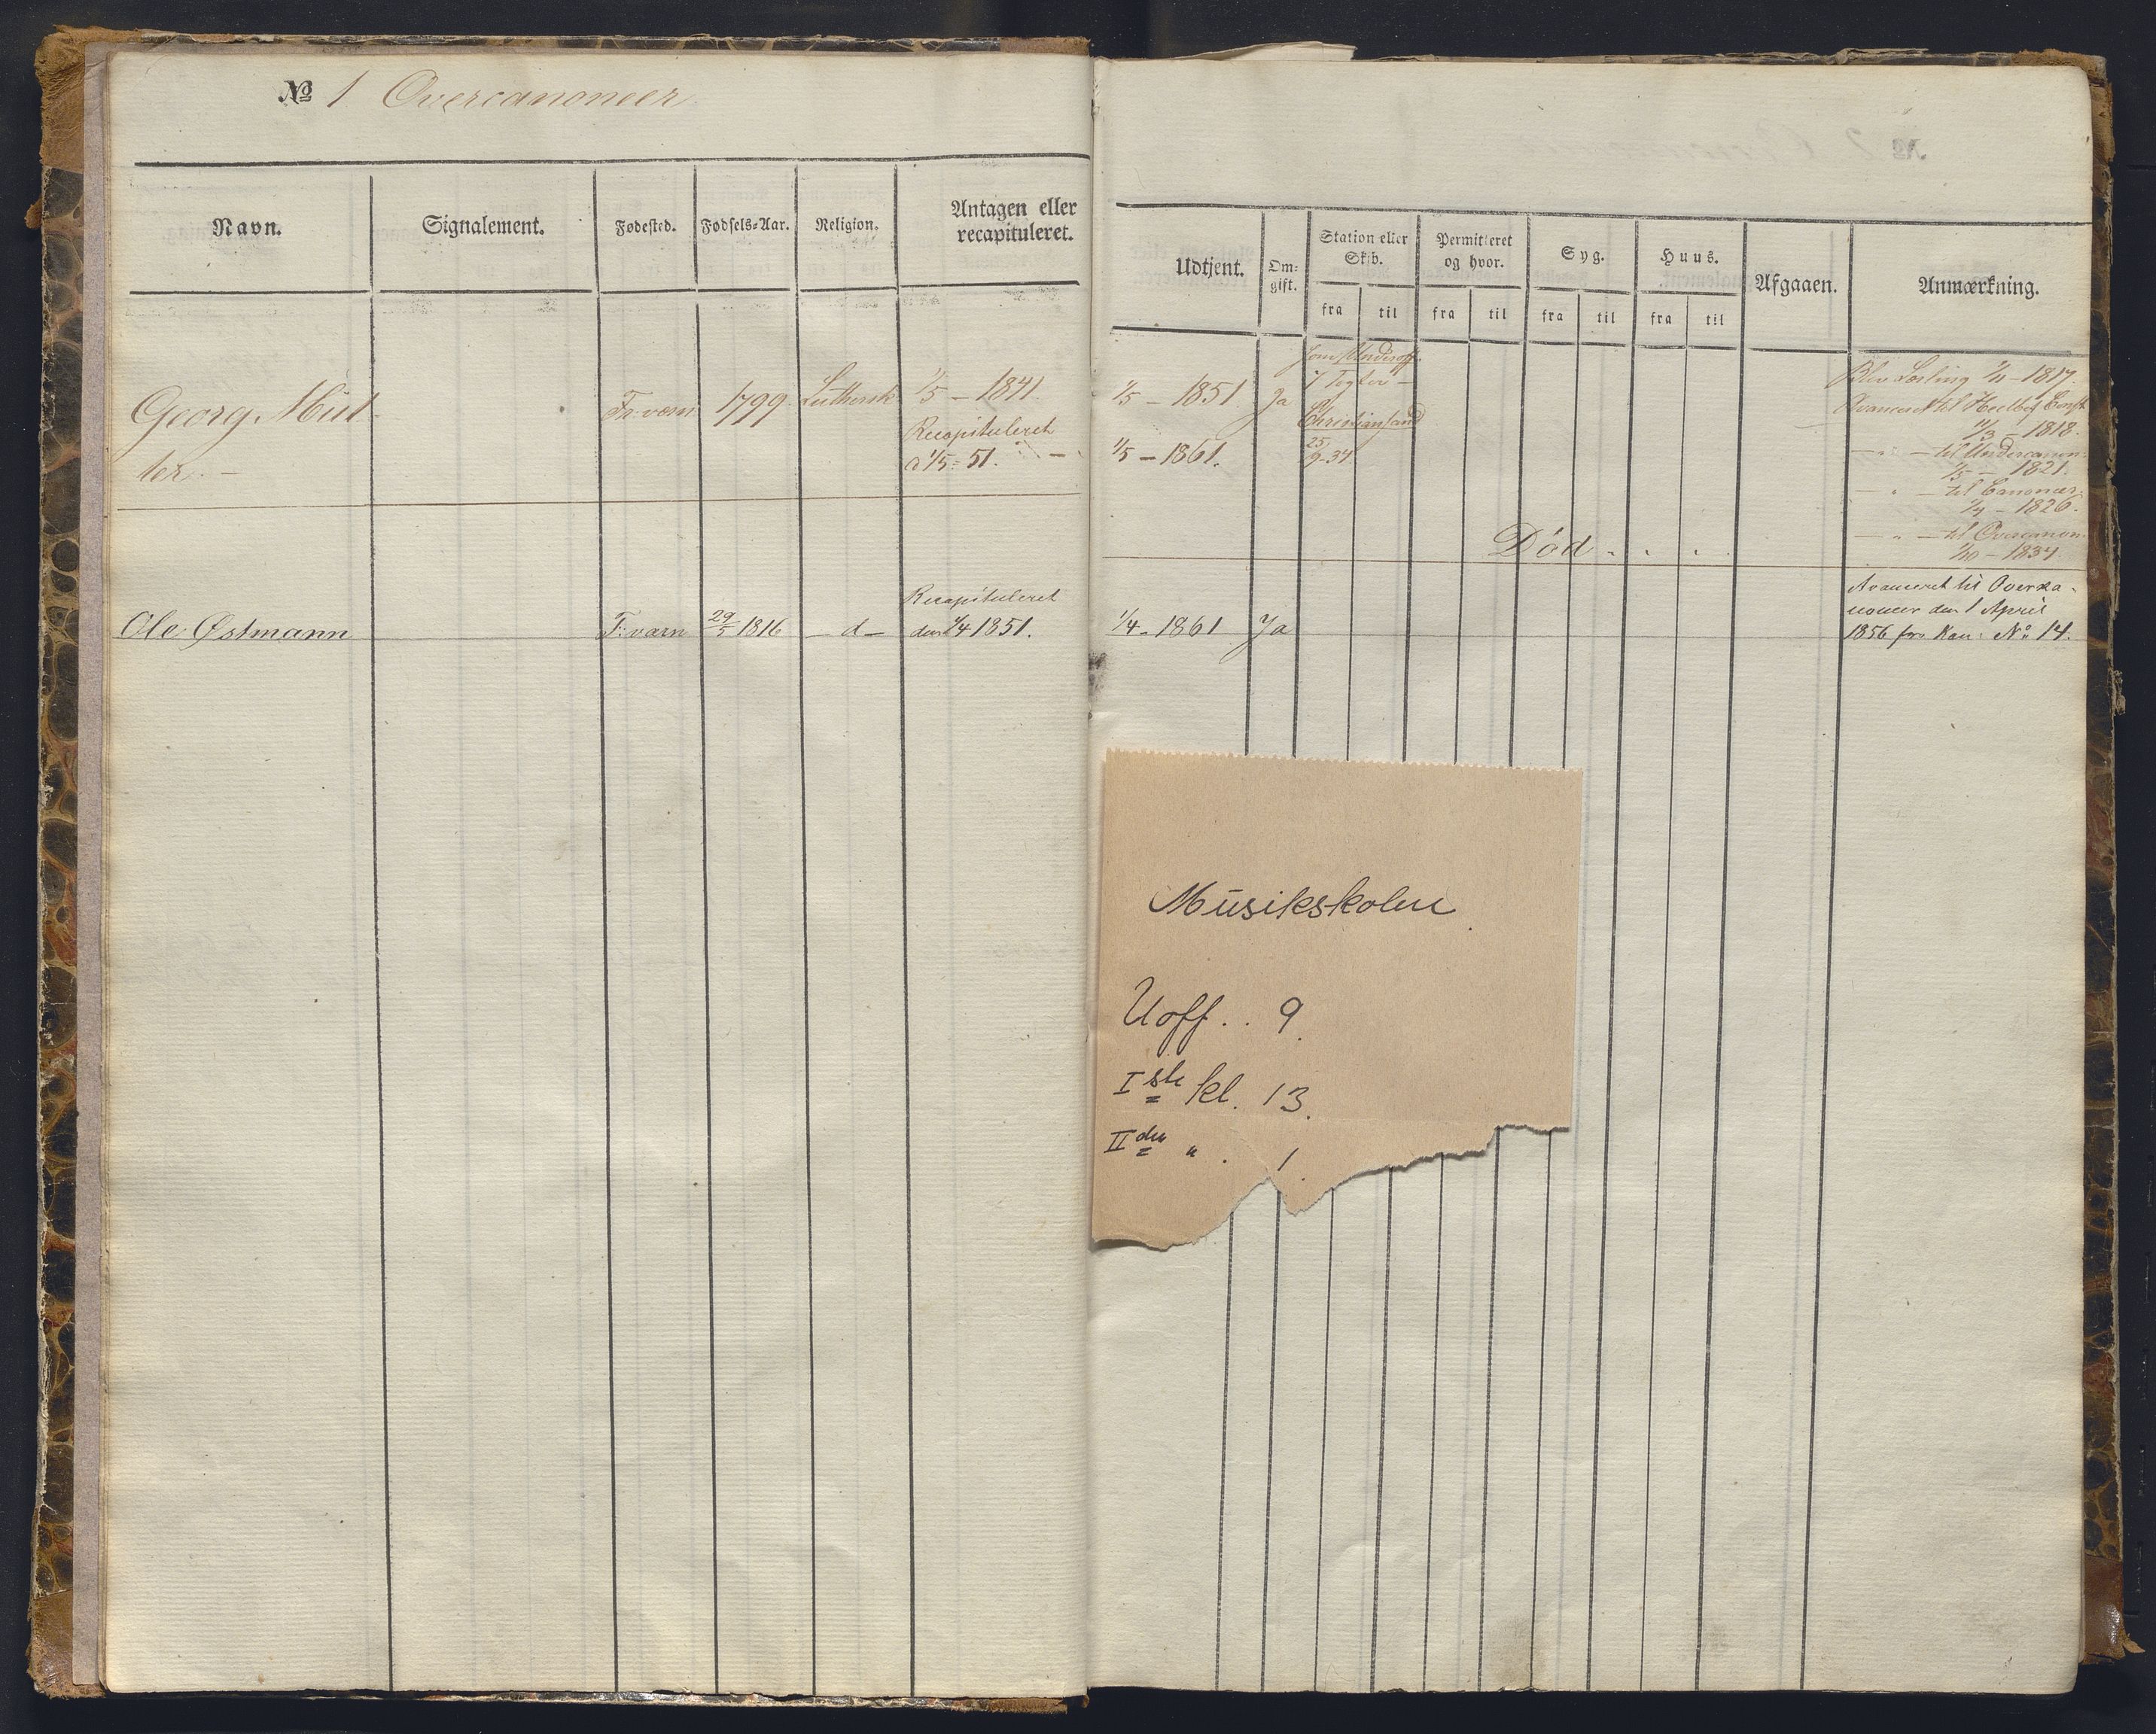 № 1 Overcanoneer
Navn.
Signalement.
Fødested.
Fødsels-Aar.
Religion.
Antagen eller
recapituleret.
Georg Mül
ler. —
Fr:værn
1799.
Luthersk
1/5 — 1841.
Recapituleret
a 1/5 = 51. —
Ole Østmann
F:værn
29/5 1816
— d —
Recapituleret
den 1/4 1851.
Udtjent.
Om-
gift.
Station eller
Skib.
Permitteret
og hvor.
Syg.
Huus.
Afgaaen.
Anmærkning.
fra
til
fra
til
fra
til
fra
til
1/5 — 1851
Ja
1/5 — 1861.
som Underoff.
Christiansand
25/9-34
Blev Lærling 1/11 – 1817.
Avanceret til
1/3 – 1818.
— „ — til Undercanon:
1/5 – 1821.
— „ — til Canoneer
1/4 – 1826.
— „ — til Overcanon:
1/10 – 1834
Død . . .
1/4 – 1861
Ja
Avanceret til Overka-
noneer den 1 April
1856 fra Kan: № 14.
Musikskolen
Uoff. . 9.
Iste kl. 13.
IIden „ . 1.